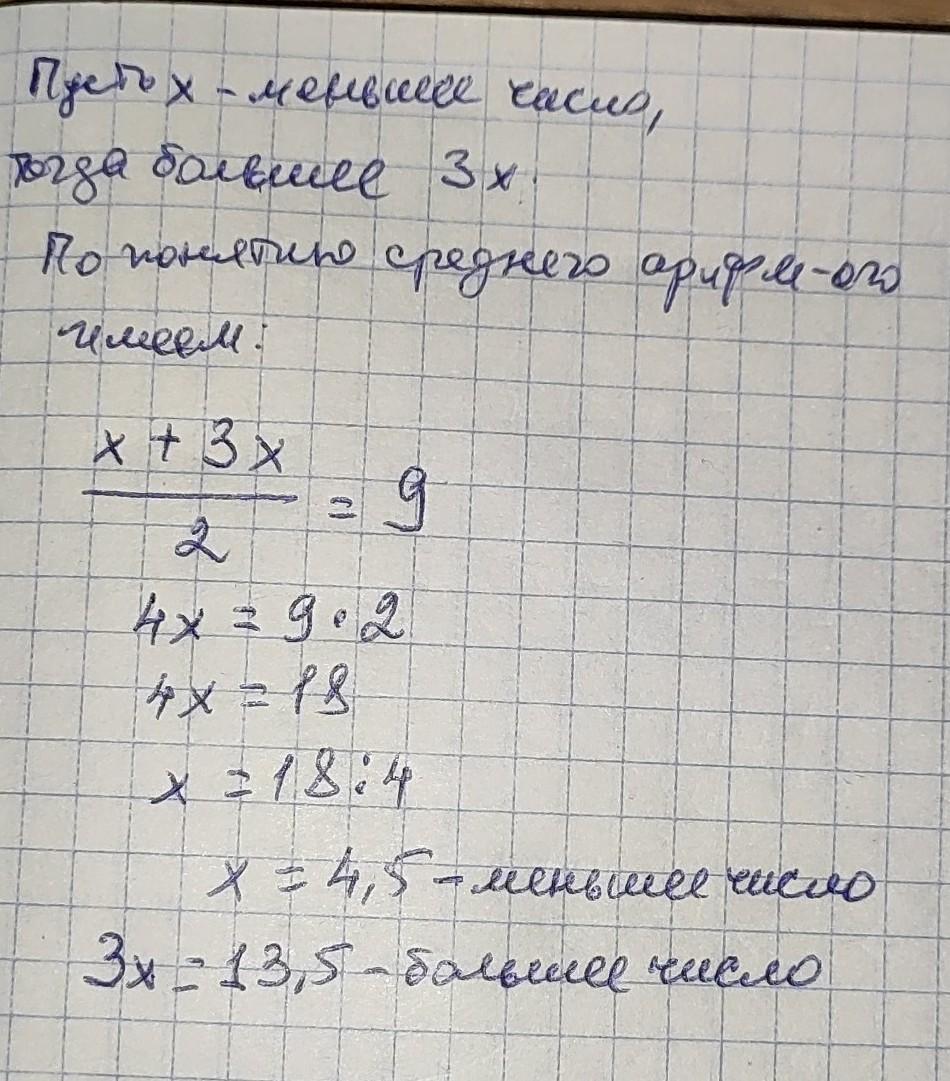 Пусть x - меньшее число,
тогда большее 3x.
По понятию среднего арифм-ого
имеем:
x + 3x
2
= 9
4x = 9 · 2
4x = 18
x = 18 : 4
x = 4,5 - меньшее число
3x = 13,5 - большее число